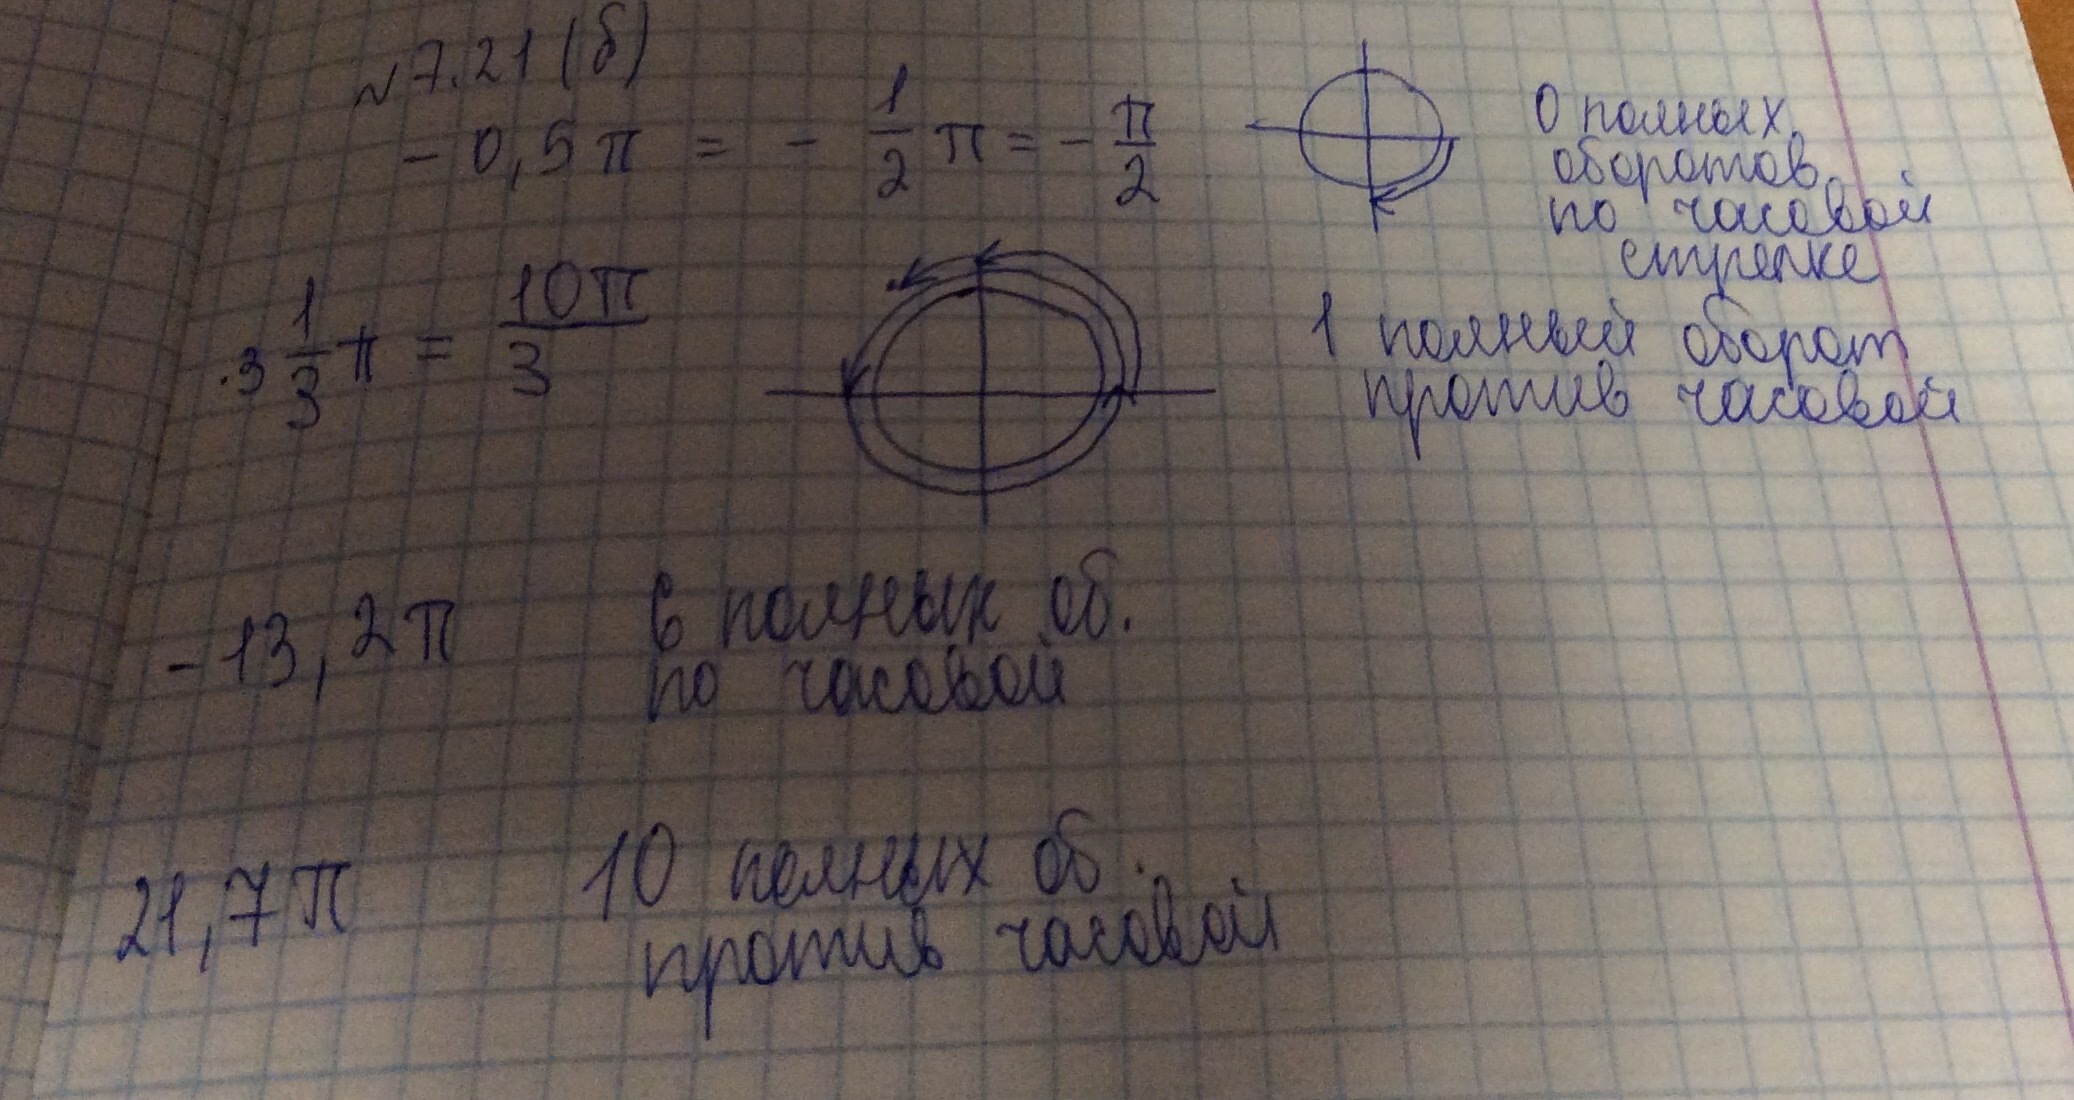 №7.21 (б)
- 0,5π = - 1/2 π = - π/2
0 полных
оборотов
по часовой
стрелке
3 1/3 π = 10π/3
1 полный оборот
против часовой
- 13,2π
6 полных об.
по часовой
21,7π
10 полных об.
против часовой